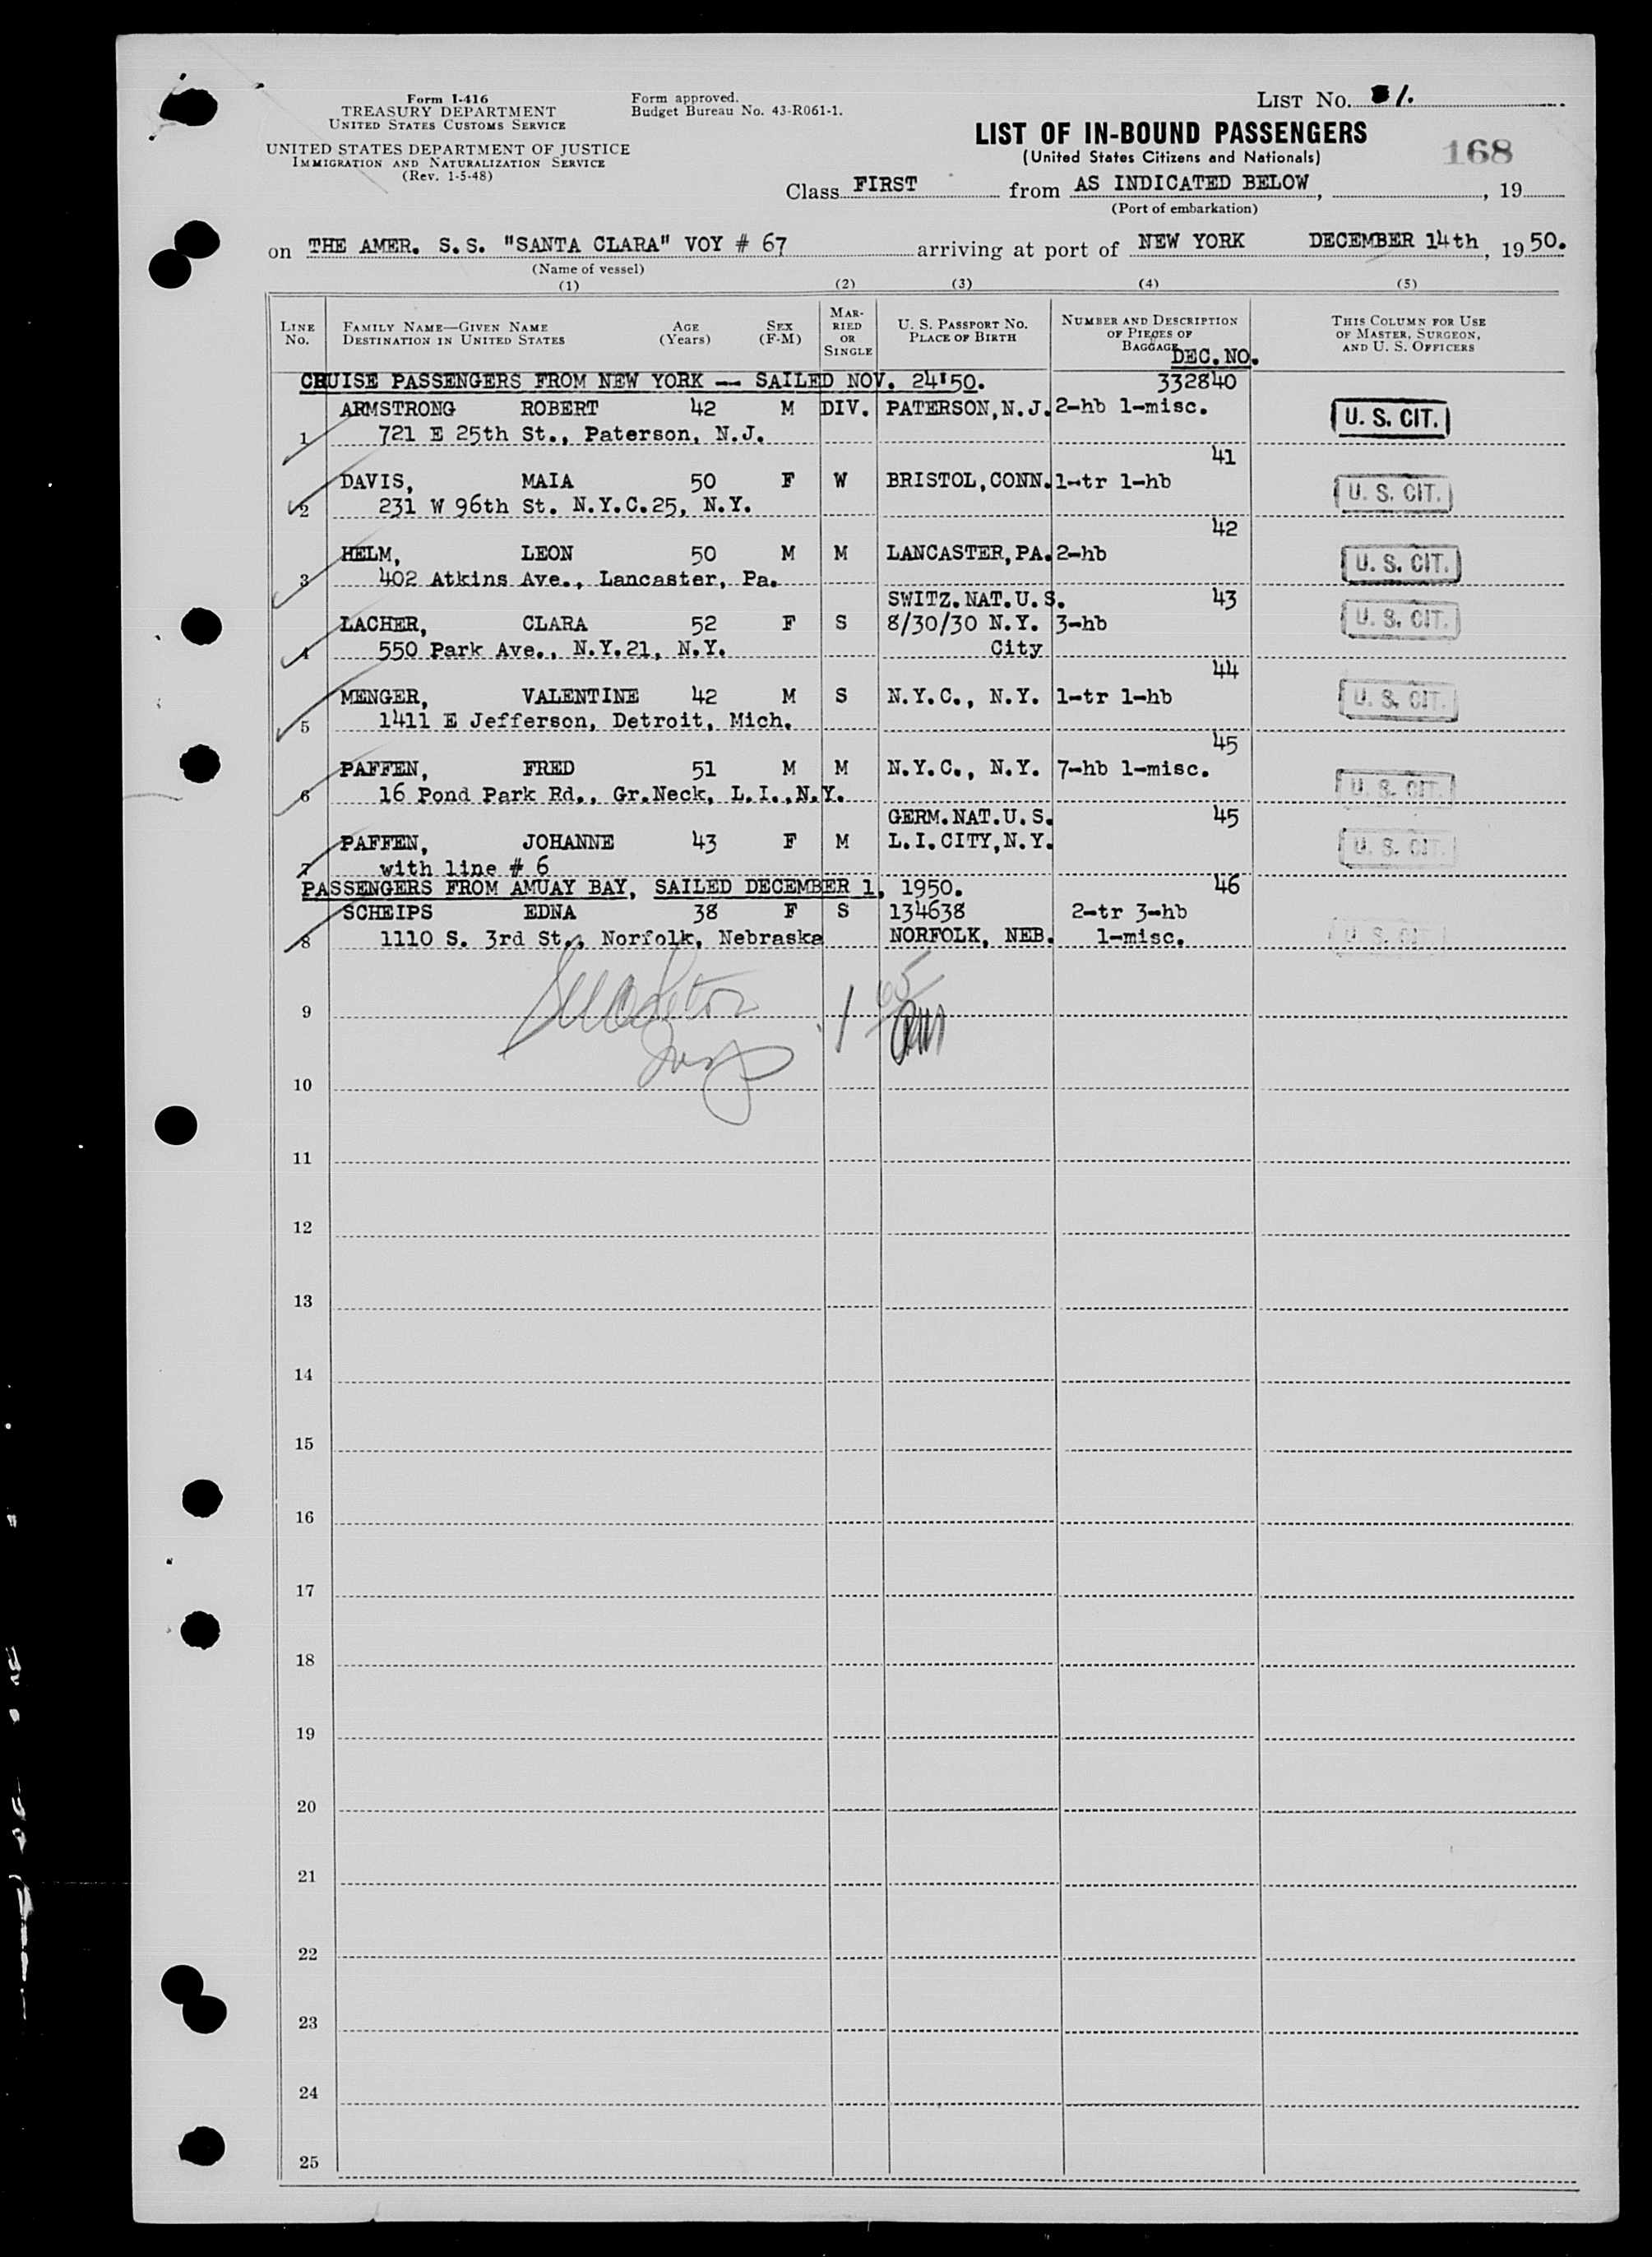 Form I-416
TREASURY DEPARTMENT
UNITED STATES CUSTOMS SERVICE
UNITED STATES DEPARTMENT OF JUSTICE
IMMIGRATION AND NATURALIZATION SERVICE
(Rev. 1-5-48)
Form approved.
Budget Bureau No. 43-R061-1.
LIST No. 1.
LIST OF IN-BOUND PASSENGERS
(United States Citizens and Nationals)
168
Class FIRST from AS INDICATED BELOW, , 19
(Port of embarkation)
on THE AMER. S.S. "SANTA CLARA" VOY # 67 arriving at port of NEW YORK DECEMBER 14th, 1950.
(Name of vessel)
(1) (2) (3) (4) (5)
LINE No. FAMILY NAME—GIVEN NAME DESTINATION IN UNITED STATES AGE (Years) SEX (F-M) MARRIED OR SINGLE U. S. PASSPORT NO. PLACE OF BIRTH NUMBER AND DESCRIPTION OF PIECES OF BAGGAGE THIS COLUMN FOR USE OF MASTER, SURGEON, AND U. S. OFFICERS
DEC. NO.
CRUISE PASSENGERS FROM NEW YORK -- SAILED NOV. 24'50. 332840
ARMSTRONG ROBERT 42 M DIV. PATERSON, N.J. 2-hb 1-misc. U. S. CIT.
1 721 E 25th St., Paterson, N.J.
41
DAVIS, MAIA 50 F W BRISTOL, CONN. 1-tr 1-hb U. S. CIT.
2 231 W 96th St. N.Y.C.25, N.Y.
42
HELM, LEON 50 M M LANCASTER, PA. 2-hb U. S. CIT.
3 402 Atkins Ave., Lancaster, Pa.
SWITZ.NAT.U.S. 43
LACHER, CLARA 52 F S 8/30/30 N.Y. 3-hb U. S. CIT.
4 550 Park Ave., N.Y.21, N.Y. City
44
MENGER, VALENTINE 42 M S N.Y.C., N.Y. 1-tr 1-hb U. S. CIT.
5 1411 E Jefferson, Detroit, Mich.
45
PAFFEN, FRED 51 M M N.Y.C., N.Y. 7-hb 1-misc. U. S. CIT.
6 16 Pond Park Rd., Gr.Neck, L.I.,N.Y.
GERM.NAT.U.S. 45
PAFFEN, JOHANNE 43 F M L.I.CITY,N.Y. U. S. CIT.
7 with line # 6
PASSENGERS FROM AMUAY BAY, SAILED DECEMBER 1, 1950. 46
SCHEIPS EDNA 38 F S 134638 2-tr 3-hb
8 1110 S. 3rd St., Norfolk, Nebraska NORFOLK, NEB. 1-misc. U. S. CIT.
9
10
11
12
13
14
15
16
17
18
19
20
21
22
23
24
25